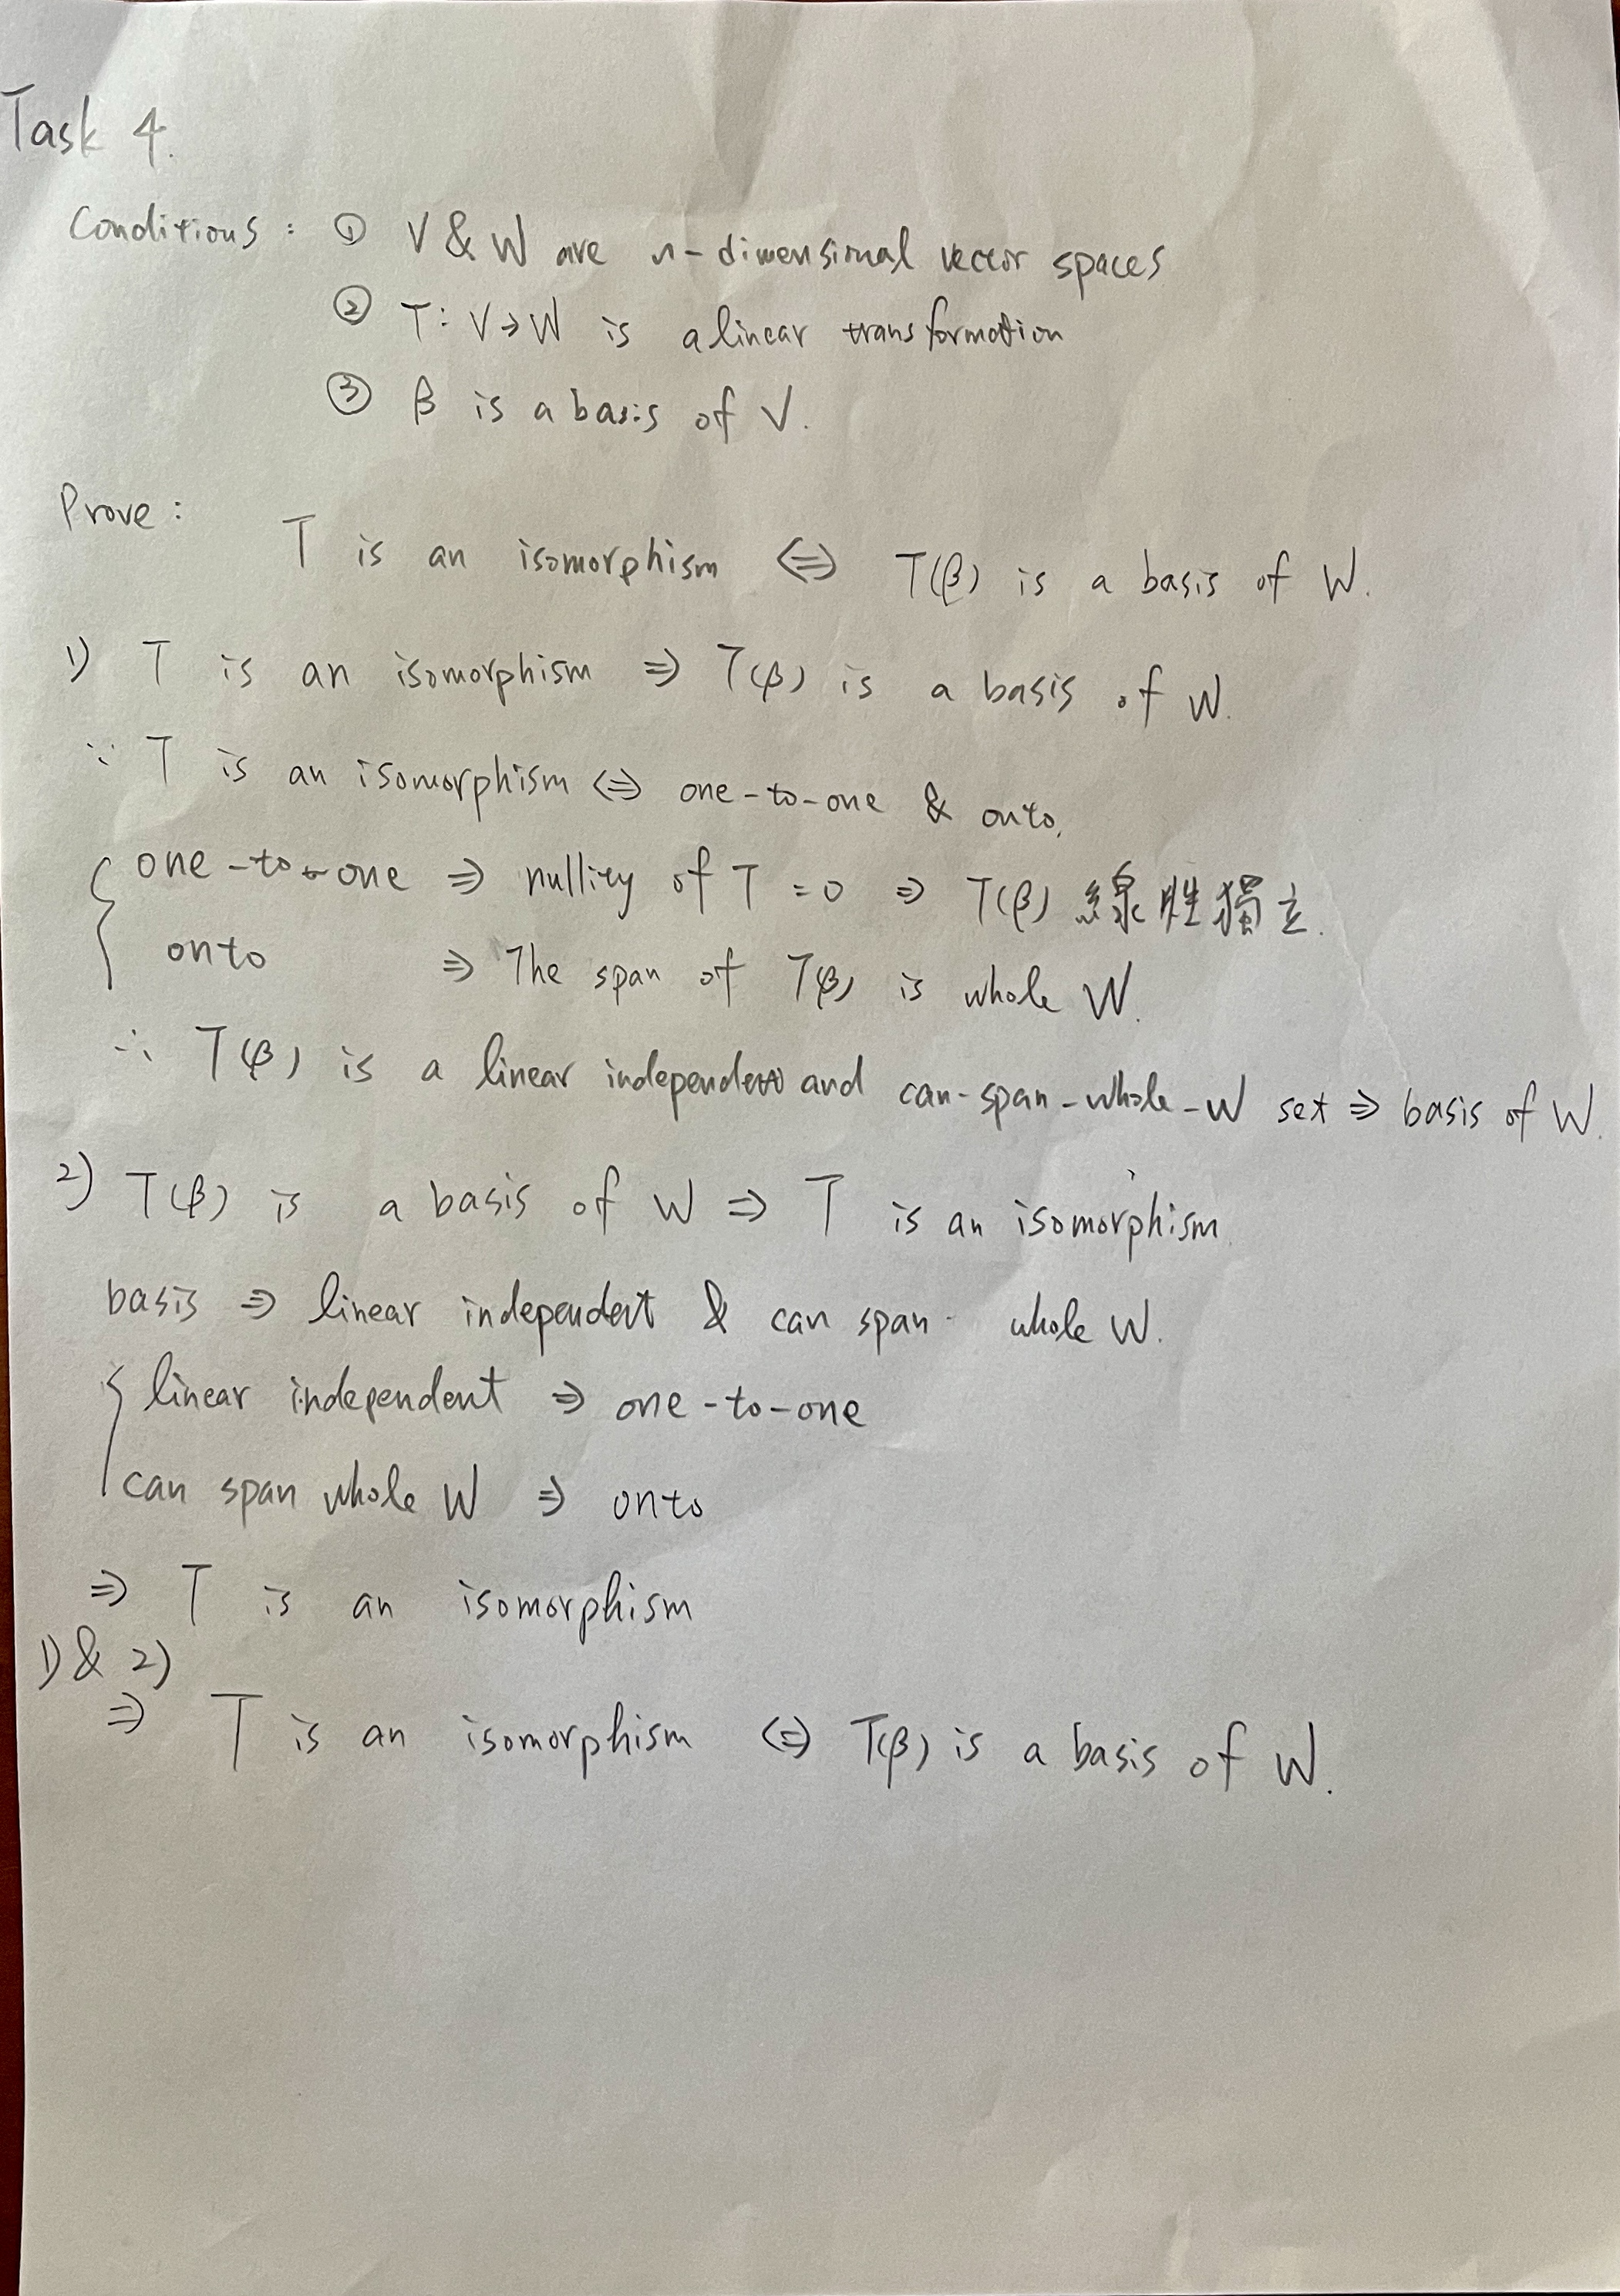 Task 4.
Conditions : ① V & W are n-dimensional vector spaces
② T: V→W is a linear transformation
③ β is a basis of V.
Prove :
T is an isomorphism ⇔ T(β) is a basis of W.
1) T is an isomorphism ⇒ T(β) is a basis of W.
∵ T is an isomorphism ⇔ one-to-one & onto.
one-to-one ⇒ nullity of T = 0 ⇒ T(β) 線性獨立.
onto ⇒ The span of T(β) is whole W.
∴ T(β) is a linear independent and can-span-whole-W set ⇒ basis of W.
2) T(β) is a basis of W ⇒ T is an isomorphism.
basis ⇒ linear independent & can span whole W.
linear independent ⇒ one-to-one
can span whole W ⇒ onto
⇒ T is an isomorphism
1) & 2)
⇒ T is an isomorphism ⇔ T(β) is a basis of W.